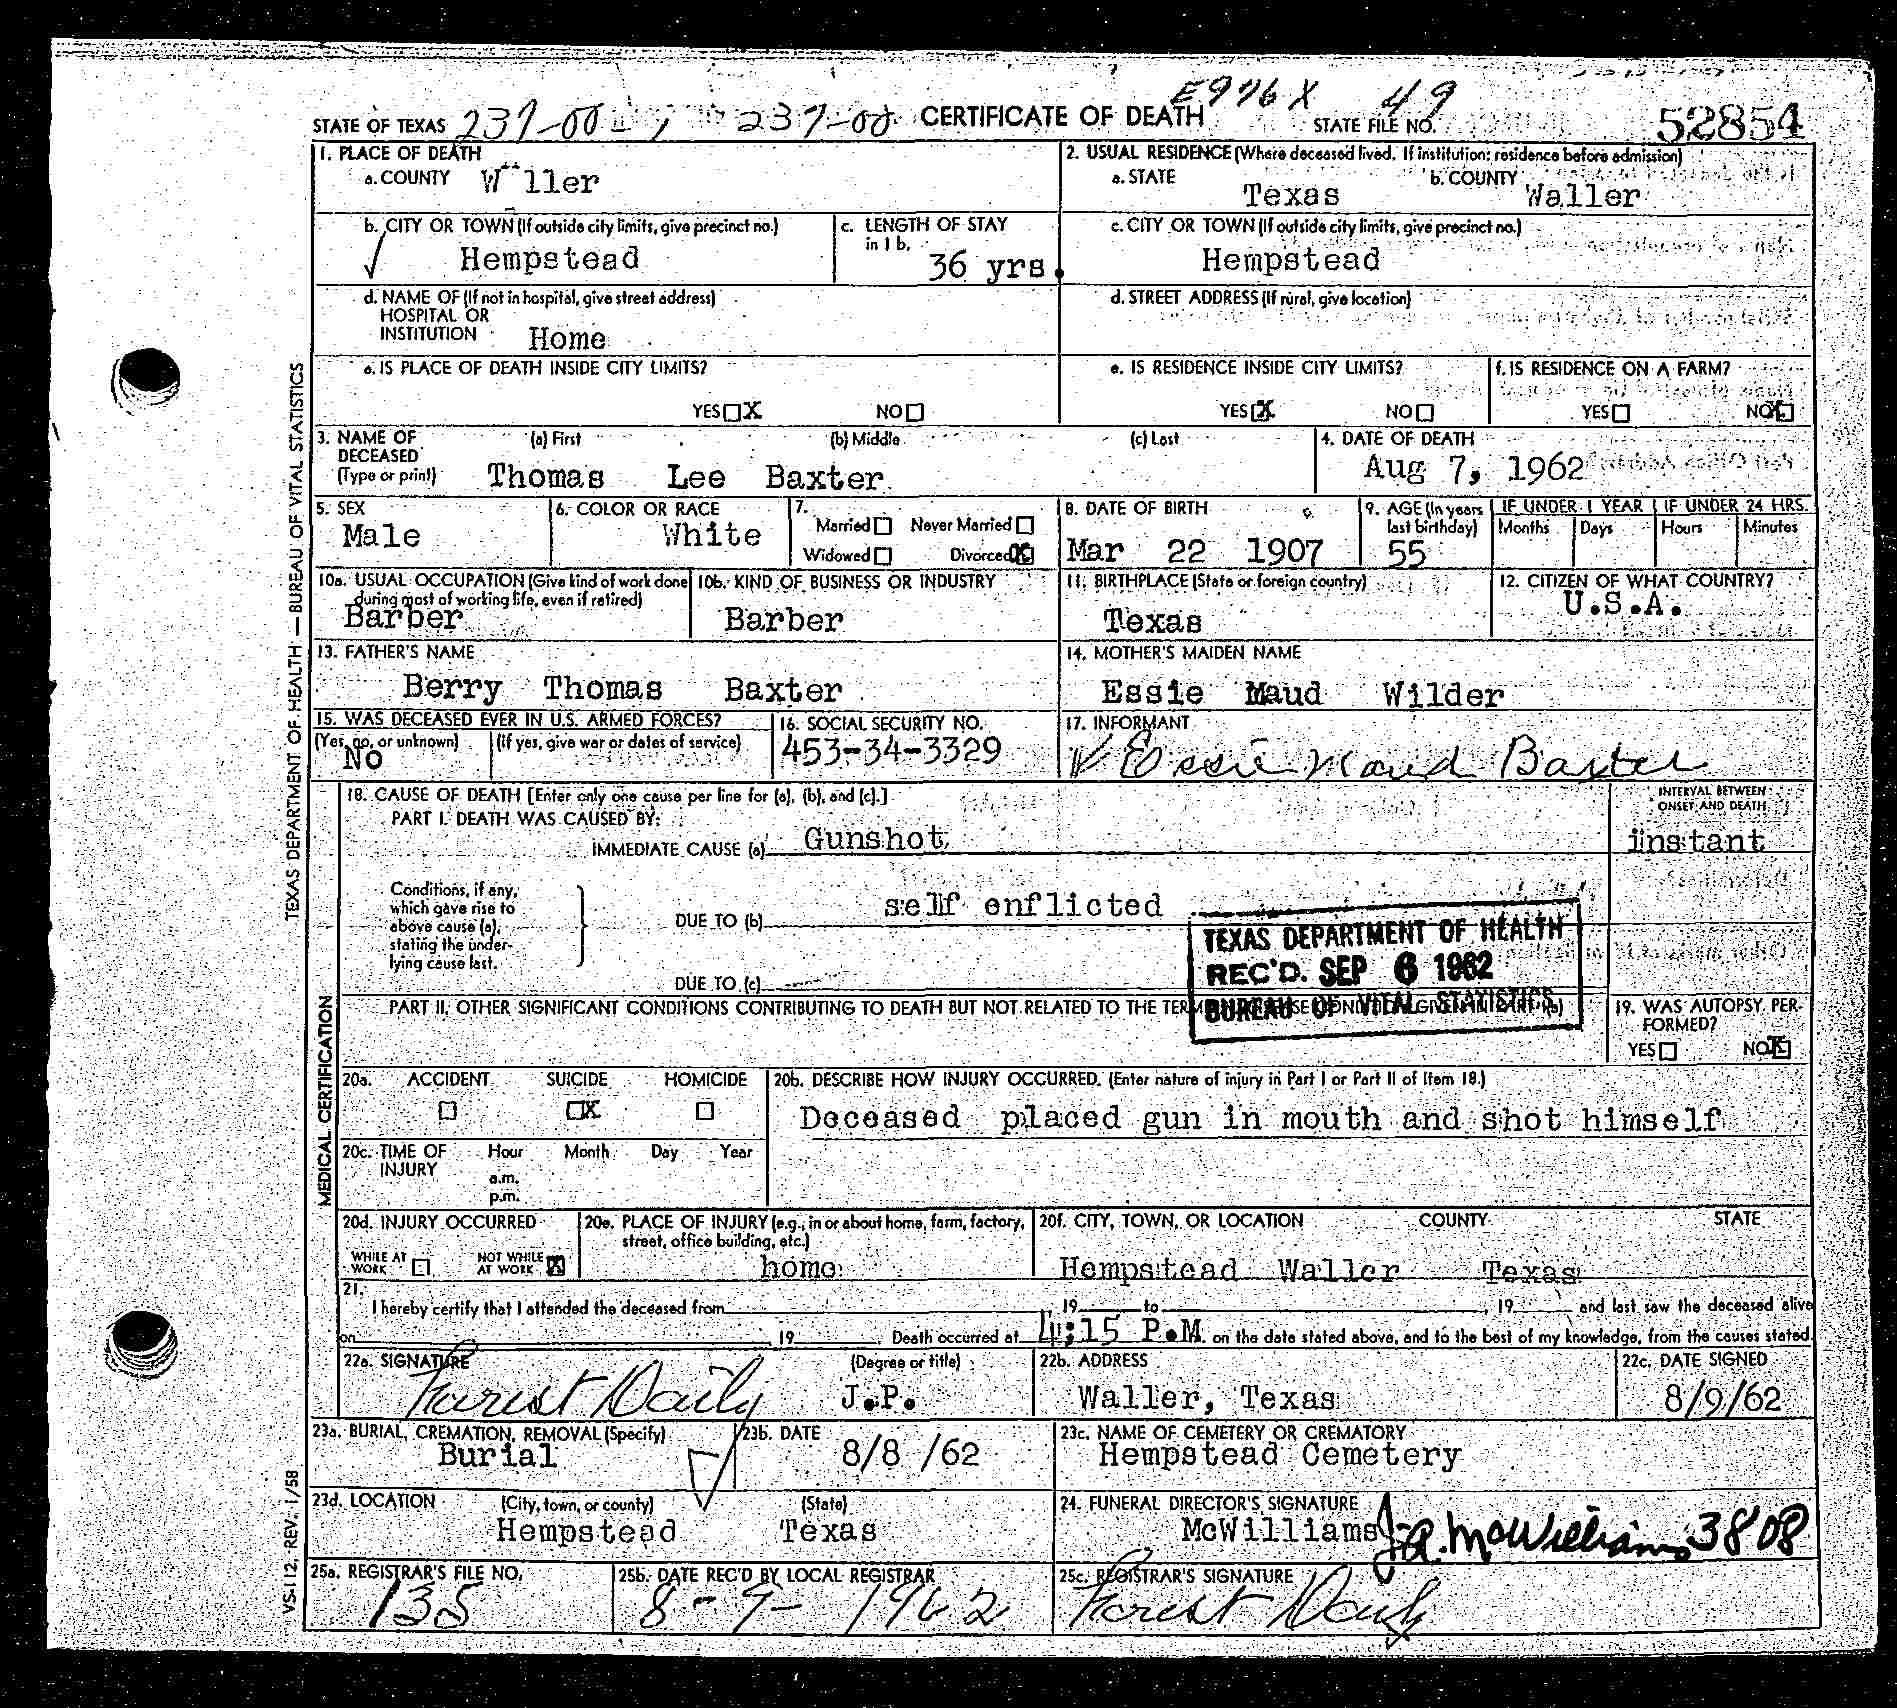 E976X 49
STATE OF TEXAS 237-00 237-00 CERTIFICATE OF DEATH STATE FILE NO. 52854
1. PLACE OF DEATH
a. COUNTY W ller
2. USUAL RESIDENCE (Where deceased lived. If institution: residence before admission)
a. STATE Texas b. COUNTY Waller
b. CITY OR TOWN (If outside city limits, give precinct no.) Hempstead
c. LENGTH OF STAY in 1 b. 36 yrs.
c. CITY OR TOWN (If outside city limits, give precinct no.) Hempstead
d. NAME OF (If not in hospital, give street address)
HOSPITAL OR
INSTITUTION Home
d. STREET ADDRESS (If rural, give location)
e. IS PLACE OF DEATH INSIDE CITY LIMITS?
YES X NO
e. IS RESIDENCE INSIDE CITY LIMITS?
YES X NO
f. IS RESIDENCE ON A FARM?
YES NO X
3. NAME OF DECEASED (Type or print)
(a) First (b) Middle (c) Last
Thomas Lee Baxter
4. DATE OF DEATH
Aug 7, 1962
5. SEX
Male
6. COLOR OR RACE
White
7.
Married Never Married
Widowed Divorced X
8. DATE OF BIRTH
Mar 22 1907
9. AGE (In years last birthday)
55
IF UNDER 1 YEAR IF UNDER 24 HRS.
Months Days Hours Minutes
10a. USUAL OCCUPATION (Give kind of work done
during most of working life, even if retired)
Barber
10b. KIND OF BUSINESS OR INDUSTRY
Barber
11. BIRTHPLACE (State or foreign country)
Texas
12. CITIZEN OF WHAT COUNTRY?
U.S.A.
13. FATHER'S NAME
Berry Thomas Baxter
14. MOTHER'S MAIDEN NAME
Essie Maud Wilder
15. WAS DECEASED EVER IN U.S. ARMED FORCES?
(Yes, no, or unknown) (If yes, give war or dates of service)
No
16. SOCIAL SECURITY NO.
453-34-3329
17. INFORMANT
Essie Maud Baxter
18. CAUSE OF DEATH [Enter only one cause per line for (a), (b), and (c).]
PART I. DEATH WAS CAUSED BY:
IMMEDIATE CAUSE (a) Gunshot
INTERVAL BETWEEN
ONSET AND DEATH
instant
Conditions, if any,
which gave rise to
above cause (a),
stating the under-
lying cause last.
DUE TO (b) self enflicted
DUE TO (c)
TEXAS DEPARTMENT OF HEALTH
REC'D. SEP 6 1962
BUREAU OF VITAL STATISTICS
PART II. OTHER SIGNIFICANT CONDITIONS CONTRIBUTING TO DEATH BUT NOT RELATED TO THE
19. WAS AUTOPSY PER-
FORMED?
YES NO X
20a. ACCIDENT SUICIDE HOMICIDE
X
20b. DESCRIBE HOW INJURY OCCURRED. (Enter nature of injury in Part I or Part II of Item 18.)
Deceased placed gun in mouth and shot himself
20c. TIME OF INJURY Hour Month Day Year
a.m.
p.m.
20d. INJURY OCCURRED
WHILE AT WORK NOT WHILE AT WORK X
20e. PLACE OF INJURY (e.g., in or about home, farm, factory,
street, office building, etc.)
home
20f. CITY, TOWN, OR LOCATION COUNTY STATE
Hempstead Waller Texas
21.
I hereby certify that I attended the deceased from , 19 to , 19 and last saw the deceased alive
on 19 . Death occurred at 4:15 P.M. on the date stated above, and to the best of my knowledge, from the causes stated.
22a. SIGNATURE (Degree or title)
Forest Daily J.P.
22b. ADDRESS
Waller, Texas
22c. DATE SIGNED
8/9/62
23a. BURIAL, CREMATION, REMOVAL (Specify)
Burial
23b. DATE
8/8 /62
23c. NAME OF CEMETERY OR CREMATORY
Hempstead Cemetery
23d. LOCATION (City, town, or county) (State)
Hempstead Texas
24. FUNERAL DIRECTOR'S SIGNATURE
McWilliams J.A. McWilliams 3808
25a. REGISTRAR'S FILE NO.
135
25b. DATE REC'D BY LOCAL REGISTRAR
8-9-1962
25c. REGISTRAR'S SIGNATURE
Forest Daily
TEXAS DEPARTMENT OF HEALTH — BUREAU OF VITAL STATISTICS
MEDICAL CERTIFICATION
VS-112, REV. 1/58